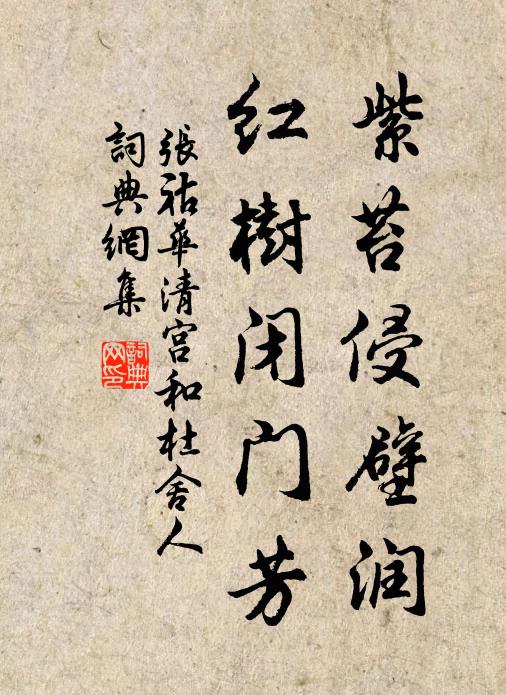 紫苔侵壁润
红樹闭门芳
張祜華清宫和杜舍人
詞典網集
詞典网印